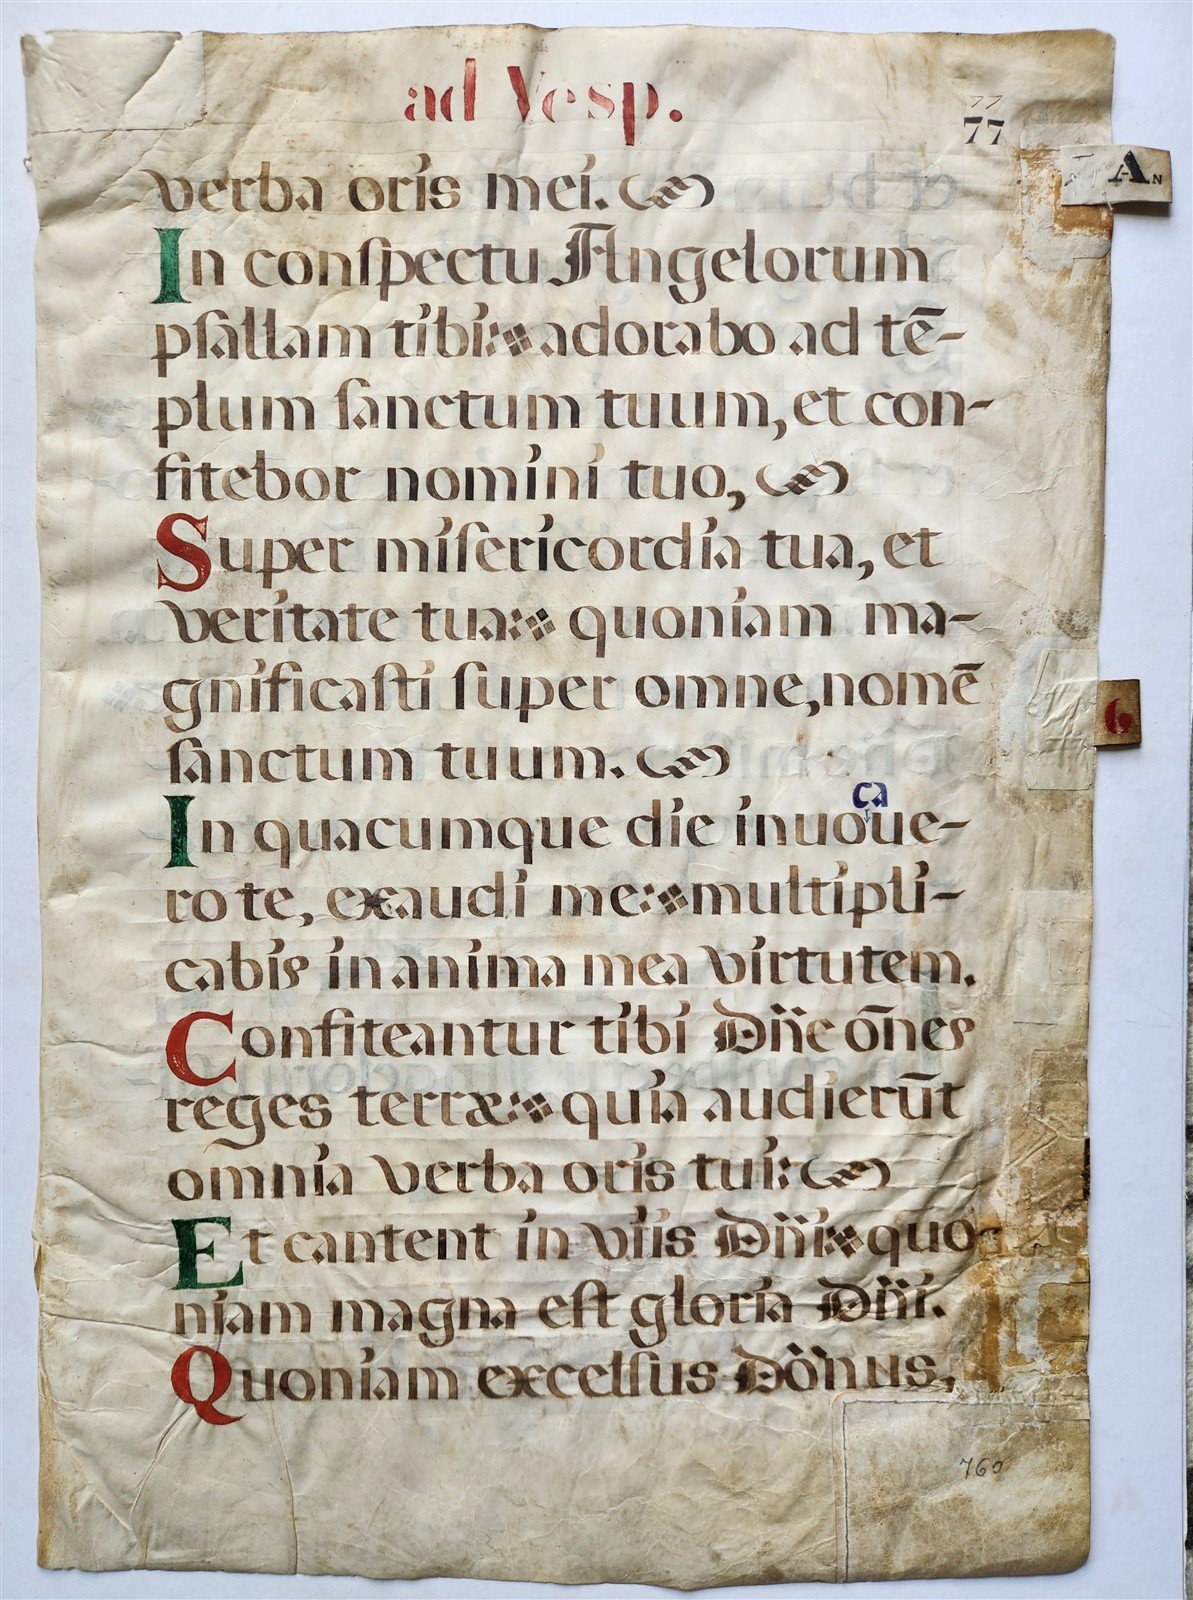 ad Vesp.
77
77
An
verba oris mei.
In conſpectu Angelorum
pſallam tibi: adorabo ad tē-
plum ſanctum tuum, et con-
fitebor nomini tuo,
Super miſericordia tua, et
veritate tua: quoniam ma-
gnificaſti ſuper omne, nomē
ſanctum tuum.
6
ca
In quacumque die inuoue-
ro te, exaudi me: multipli-
cabis in anima mea virtutem.
Confiteantur tibi Dn̄e om̄nes
reges terræ: quia audierūt
omnia verba oris tui:
Et cantent in viis Dn̄i quo
niam magna eſt gloria Dn̄i.
Quoniam excelſus Dōnus,
760